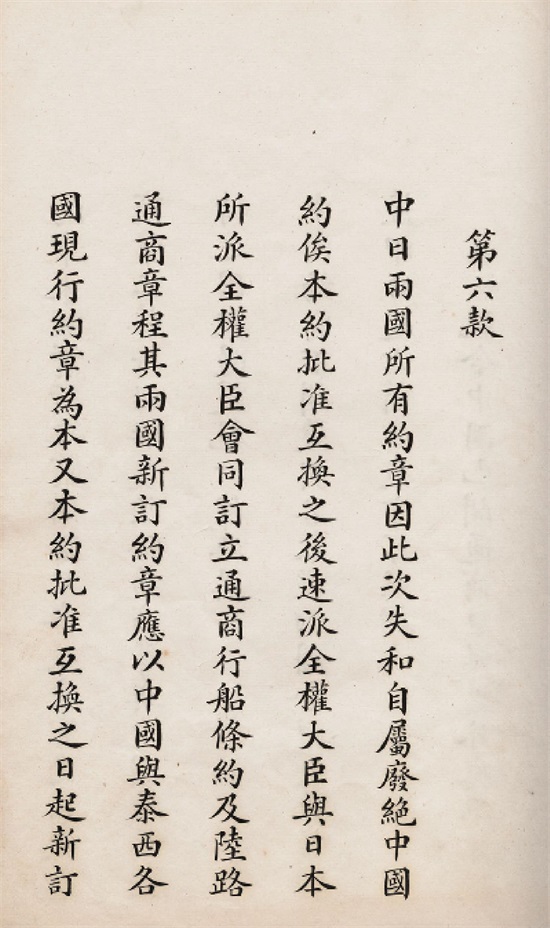 第六款
中日兩國所有約章因此次失和自屬廢絶中國
約俟本約批准互換之後速派全權大臣與日本
所派全權大臣會同訂立通商行船條約及陸路
通商章程其兩國新訂約章應以中國與泰西各
國現行約章為本又本約批准互換之日起新訂